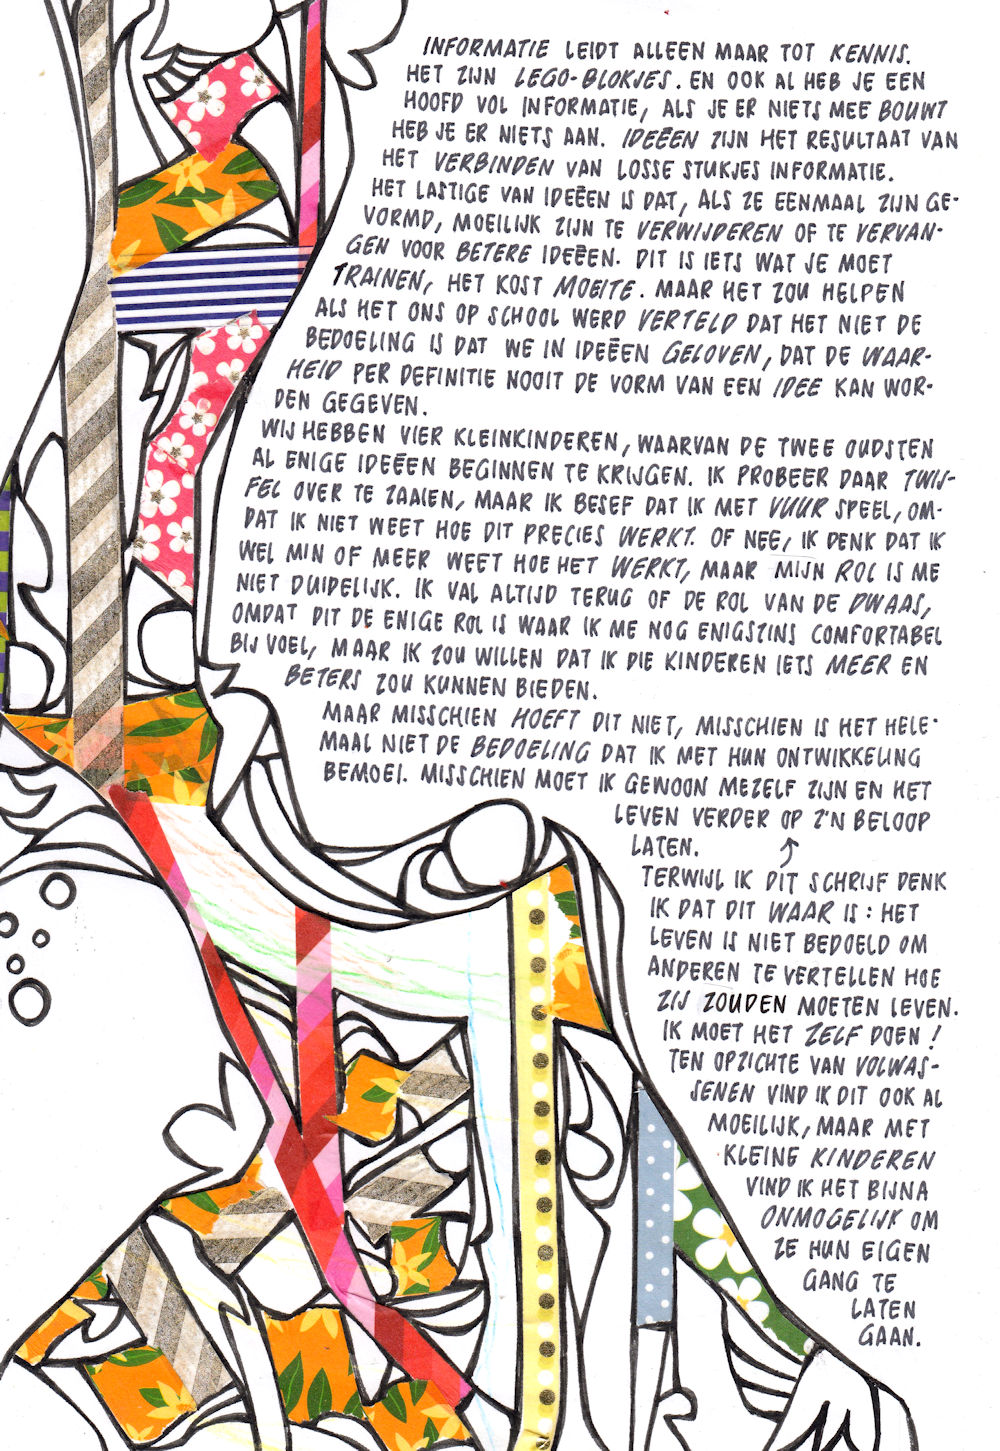 INFORMATIE LEIDT ALLEEN MAAR TOT KENNIS.
HET ZIJN LEGO-BLOKJES. EN OOK AL HEB JE EEN
HOOFD VOL INFORMATIE, ALS JE ER NIETS MEE BOUWT
HEB JE ER NIETS AAN. IDEEËN ZIJN HET RESULTAAT VAN
HET VERBINDEN VAN LOSSE STUKJES INFORMATIE.
HET LASTIGE VAN IDEEËN IS DAT, ALS ZE EENMAAL ZIJN GE-
VORMD, MOEILIJK ZIJN TE VERWIJDEREN OF TE VERVAN-
GEN VOOR BETERE IDEEËN. DIT IS IETS WAT JE MOET
TRAINEN, HET KOST MOEITE. MAAR HET ZOU HELPEN
ALS HET ONS OP SCHOOL WERD VERTELD DAT HET NIET DE
BEDOELING IS DAT WE IN IDEEËN GELOVEN, DAT DE WAAR-
HEID PER DEFINITIE NOOIT DE VORM VAN EEN IDEE KAN WOR-
DEN GEGEVEN.
WIJ HEBBEN VIER KLEINKINDEREN, WAARVAN DE TWEE OUDSTEN
AL ENIGE IDEEËN BEGINNEN TE KRIJGEN. IK PROBEER DAAR TWIJ-
FEL OVER TE ZAAIEN, MAAR IK BESEF DAT IK MET VUUR SPEEL, OM-
DAT IK NIET WEET HOE DIT PRECIES WERKT. OF NEE, IK DENK DAT IK
WEL MIN OF MEER WEET HOE HET WERKT, MAAR MIJN ROL IS ME
NIET DUIDELIJK. IK VAL ALTIJD TERUG OF DE ROL VAN DE DWAAS,
OMDAT DIT DE ENIGE ROL IS WAAR IK ME NOG ENIGSZINS COMFORTABEL
BIJ VOEL, MAAR IK ZOU WILLEN DAT IK DIE KINDEREN IETS MEER EN
BETERS ZOU KUNNEN BIEDEN.
MAAR MISSCHIEN HOEFT DIT NIET, MISSCHIEN IS HET HELE-
MAAL NIET DE BEDOELING DAT IK MET HUN ONTWIKKELING
BEMOEI. MISSCHIEN MOET IK GEWOON MEZELF ZIJN EN HET
LEVEN VERDER OP Z'N BELOOP
LATEN.
TERWIJL IK DIT SCHRIJF DENK
IK DAT DIT WAAR IS: HET
LEVEN IS NIET BEDOELD OM
ANDEREN TE VERTELLEN HOE
ZIJ ZOUDEN MOETEN LEVEN.
IK MOET HET ZELF DOEN!
TEN OPZICHTE VAN VOLWAS-
SENEN VIND IK DIT OOK AL
MOEILIJK, MAAR MET
KLEINE KINDEREN
VIND IK HET BIJNA
ONMOGELIJK OM
ZE HUN EIGEN
GANG TE
LATEN
GAAN.